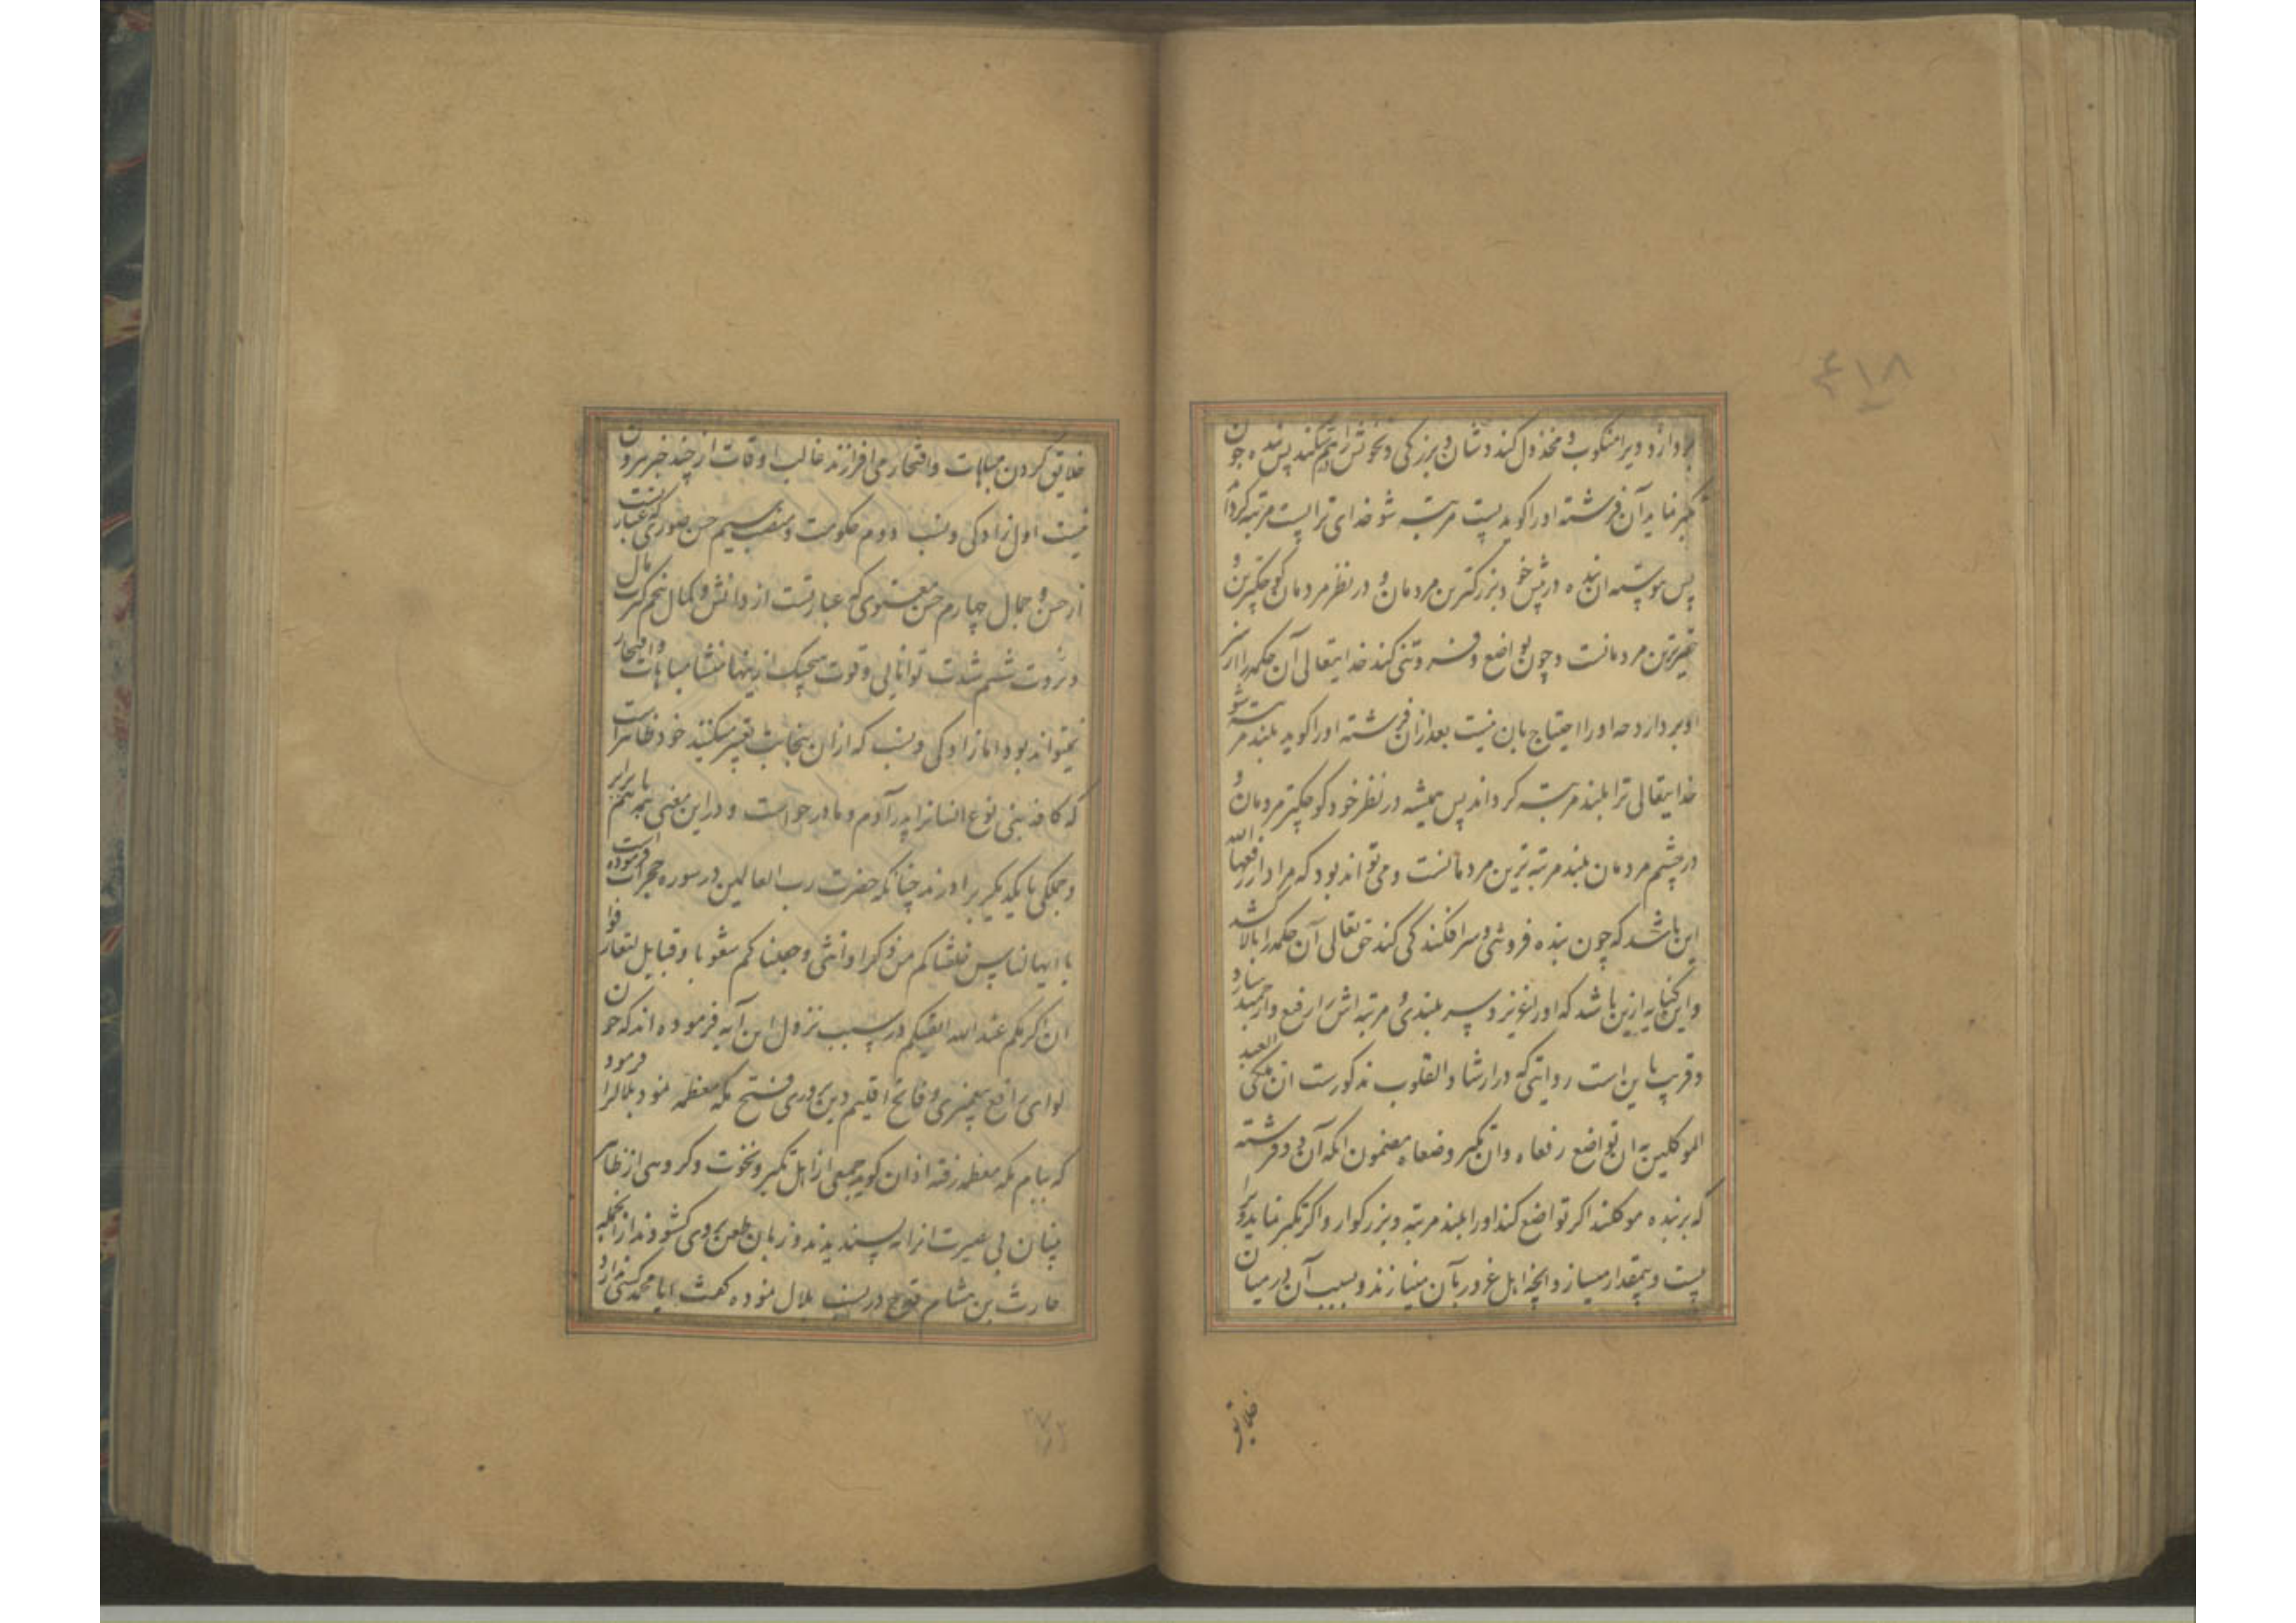 ۴۱۸
بردارد و ویرا منکوب و مخذول کند و شان و بزرگی و نخوتش را هم شکند پس بنده چون
تکبر نماید آن فرشته او را کوید پست مرتبه شو خدای ترا پست مرتبه کرداند
پس پیوسته آن بنده در پیش خود بزرکترین مردمان و در نظر مردمان کوچکترین و
حقیرترین مردمانست و چون تواضع و فروتنی کند خدایتعالی آن حکمه را از سر
او بردارد چه او را احتیاج بآن نیست بعد از آن فرشته او را کوید بلند مرتبه شو
خدایتعالی ترا بلند مرتبه کرداند پس همیشه در نظر خود کوچکتر مردمان و
در چشم مردمان بلند مرتبه ترین مردمانست و می تواند بود که مراد از رفعها الله
این باشد که چون بنده فروتنی و سرافکندکی کند حق تعالی آن حکمه را بالا کشد
و این کنایه ازین باشد که او را عزیز و سربلند و مرتبه اش را رفیع و ارجمند سازد
و قریب باین است روایتی که در ارشاد القلوب مذکورست ان ملکی العبد
الموکلین به ان تواضع رفعاه وان تکبر وضعاه مضمون آنکه آن دو فرشته
که بر بنده موکلند اکر تواضع کند او را بلند مرتبه و بزرکوار و اکر تکبر نماید ویرا
پست و بیمقدار میسازد و آنچه اهل غرور بآن مینازند و بسبب آن در میان
خلایق
خلایق کردن مباهات و افتخار می افرازند غالب اوقات از چند چیز بیرون
نیست اول نژادکی و نسب دوم حکومت و منصب سیم حسن صوری که عبارتست
از حسن و جمال چهارم حسن معنوی که عبارتست از دانش و کمال پنجم کثرت مال
و ثروت ششم شدت توانایی و قوت هیچیک ازینها منشا مباهات و افتخار
نمیتواند بود اما نژادکی و نسب که از آن بنجابت تعبیر میکنند خود ظاهرست
که کافه بنی نوع انسانرا پدر آدم و مادر حواست و در این معنی همه باهم برابر
و جملکی با یکدیکر برادرند چنانکه حضرت رب العالمین در سوره حجرات فرموده است
یا ایها الناس خلقناکم من ذکر وانثی وجعلناکم شعوبا وقبایل لتعارفوا
ان اکرمکم عند الله اتقیکم در سبب نزول این آیه فرموده اند که چون
لوای رافع پیغمبری و فاتح اقلیم دین وری فتح مکه معظمه نمود بلالرا فرمود
که ببام مکه معظمه رفته اذان کوید جمعی از اهل تکبر و نخوت و کروهی از ظاهر
بینان بی بصیرت آنرا نه پسندیدند و زبان طعن بر وی کشودند از آنجمله
حارث بن هشام قدح در نسب بلال نموده کفت آیا محمد کسی ندارد